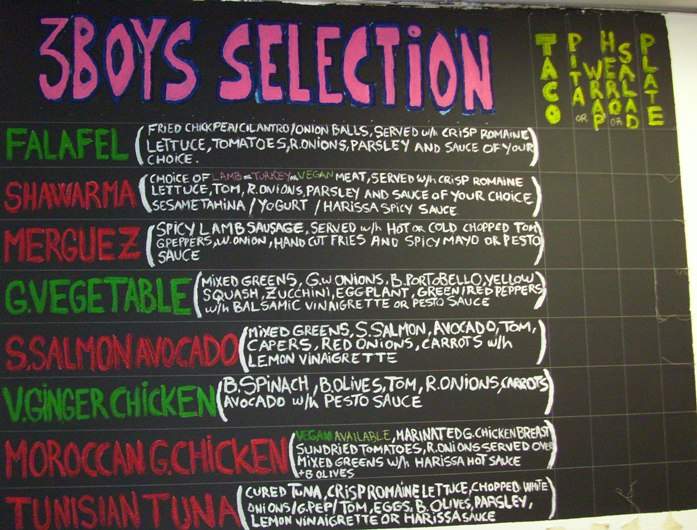 3BOYS SELECTION
TACO
PITA OR
WRAP
HERO OR
SALAD
PLATE
FALAFEL
FRIED CHICKPEA/CILANTRO/ONION BALLS, SERVED w/h CRISP ROMAINE
LETTUCE, TOMATOES, R.ONIONS, PARSLEY AND SAUCE OF YOUR
CHOICE.
SHAWARMA
CHOICE OF LAMB OR TURKEY OR VEGAN MEAT, SERVED w/h CRISP ROMAINE
LETTUCE, TOM, R.ONIONS, PARSLEY AND SAUCE OF YOUR CHOICE
SESAME TAHINA / YOGURT / HARISSA SPICY SAUCE
MERGUEZ
SPICY LAMB SAUSAGE, SERVED w/h HOT OR COLD CHOPPED TOM
G.PEPPERS, W.ONION, HAND CUT FRIES AND SPICY MAYO OR PESTO
SAUCE
G.VEGETABLE
MIXED GREENS, G.W ONIONS, B.PORTOBELLO, YELLOW
SQUASH, ZUCCHINI, EGGPLANT, GREEN/RED PEPPERS
w/h BALSAMIC VINAIGRETTE OR PESTO SAUCE
S.SALMON AVOCADO
MIXED GREENS, S.SALMON, AVOCADO, TOM,
CAPERS, RED ONIONS, CARROTS w/h
LEMON VINAIGRETTE
V.GINGER CHICKEN
B.SPINACH, B.OLIVES, TOM, R.ONIONS, CARROTS
AVOCADO w/h PESTO SAUCE
MOROCCAN G.CHICKEN
VEGAN AVAILABLE, MARINATED G.CHICKEN BREAST
SUNDRIED TOMATOES, R.ONIONS SERVED OVER
MIXED GREENS w/h HARISSA HOT SAUCE
+B OLIVES
TUNISIAN TUNA
CURED TUNA, CRISP ROMAINE LETTUCE, CHOPPED WHITE
ONIONS/G.PEP/TOM, EGGS, B.OLIVES, PARSLEY,
LEMON VINAIGRETTE OR HARISSA SAUCE